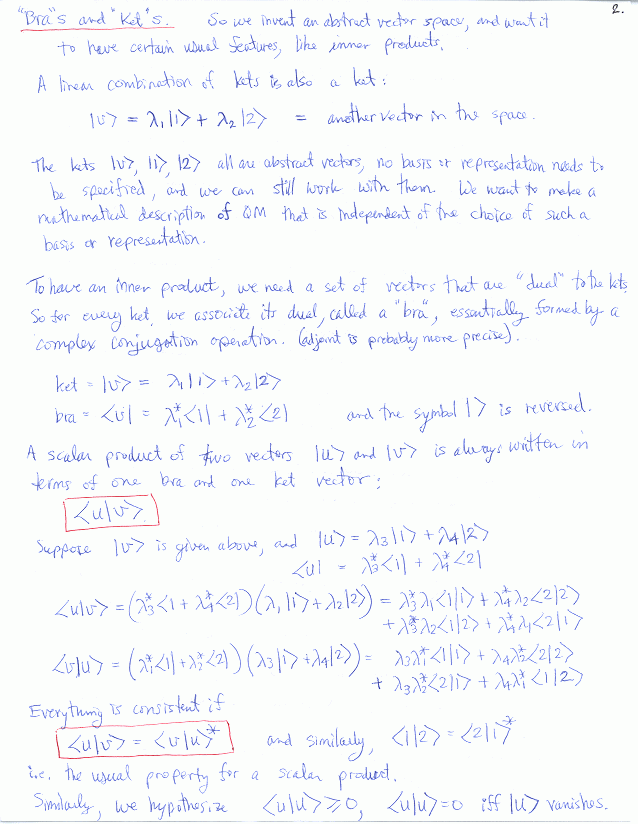 2.
"Bra"s and "Ket"s. So we invent an abstract vector space, and want it
to have certain usual features, like inner products.
A linear combination of kets is also a ket:
|v> = λ₁|1> + λ₂|2> = another vector in the space.
The kets |v>, |1>, |2> all are abstract vectors, no basis or representation needs to
be specified, and we can still work with them. We want to make a
mathematical description of QM that is independent of the choice of such a
basis or representation.
To have an inner product, we need a set of vectors that are "dual" to the kets.
So for every ket, we associate its dual, called a "bra", essentially formed by a
complex conjugation operation. (adjoint is probably more precise).
ket = |v> = λ₁|1> + λ₂|2>
bra = <v| = λ₁*<1| + λ₂*<2| and the symbol |> is reversed.
A scalar product of two vectors |u> and |v> is always written in
terms of one bra and one ket vector:
<u|v>
Suppose |v> is given above, and |u> = λ₃|1> + λ₄|2>
<u| = λ₃*<1| + λ₄*<2|
<u|v> = (λ₃*<1 + λ₄*<2|)(λ₁|1> + λ₂|2>) = λ₃*λ₁<1|1> + λ₄*λ₂<2|2>
+ λ₃*λ₂<1|2> + λ₄*λ₁<2|1>
<v|u> = (λ₁*<1| + λ₂*<2|)(λ₃|1> + λ₄|2>) = λ₃λ₁*<1|1> + λ₄λ₂*<2|2>
+ λ₃λ₂*<2|1> + λ₄λ₁*<1|2>
Everything is consistent if
<u|v> = <v|u>* and similarly, <1|2> = <2|1>*
i.e. the usual property for a scalar product.
Similarly, we hypothesize <u|u> ≥ 0, <u|u> = 0 iff |u> vanishes.